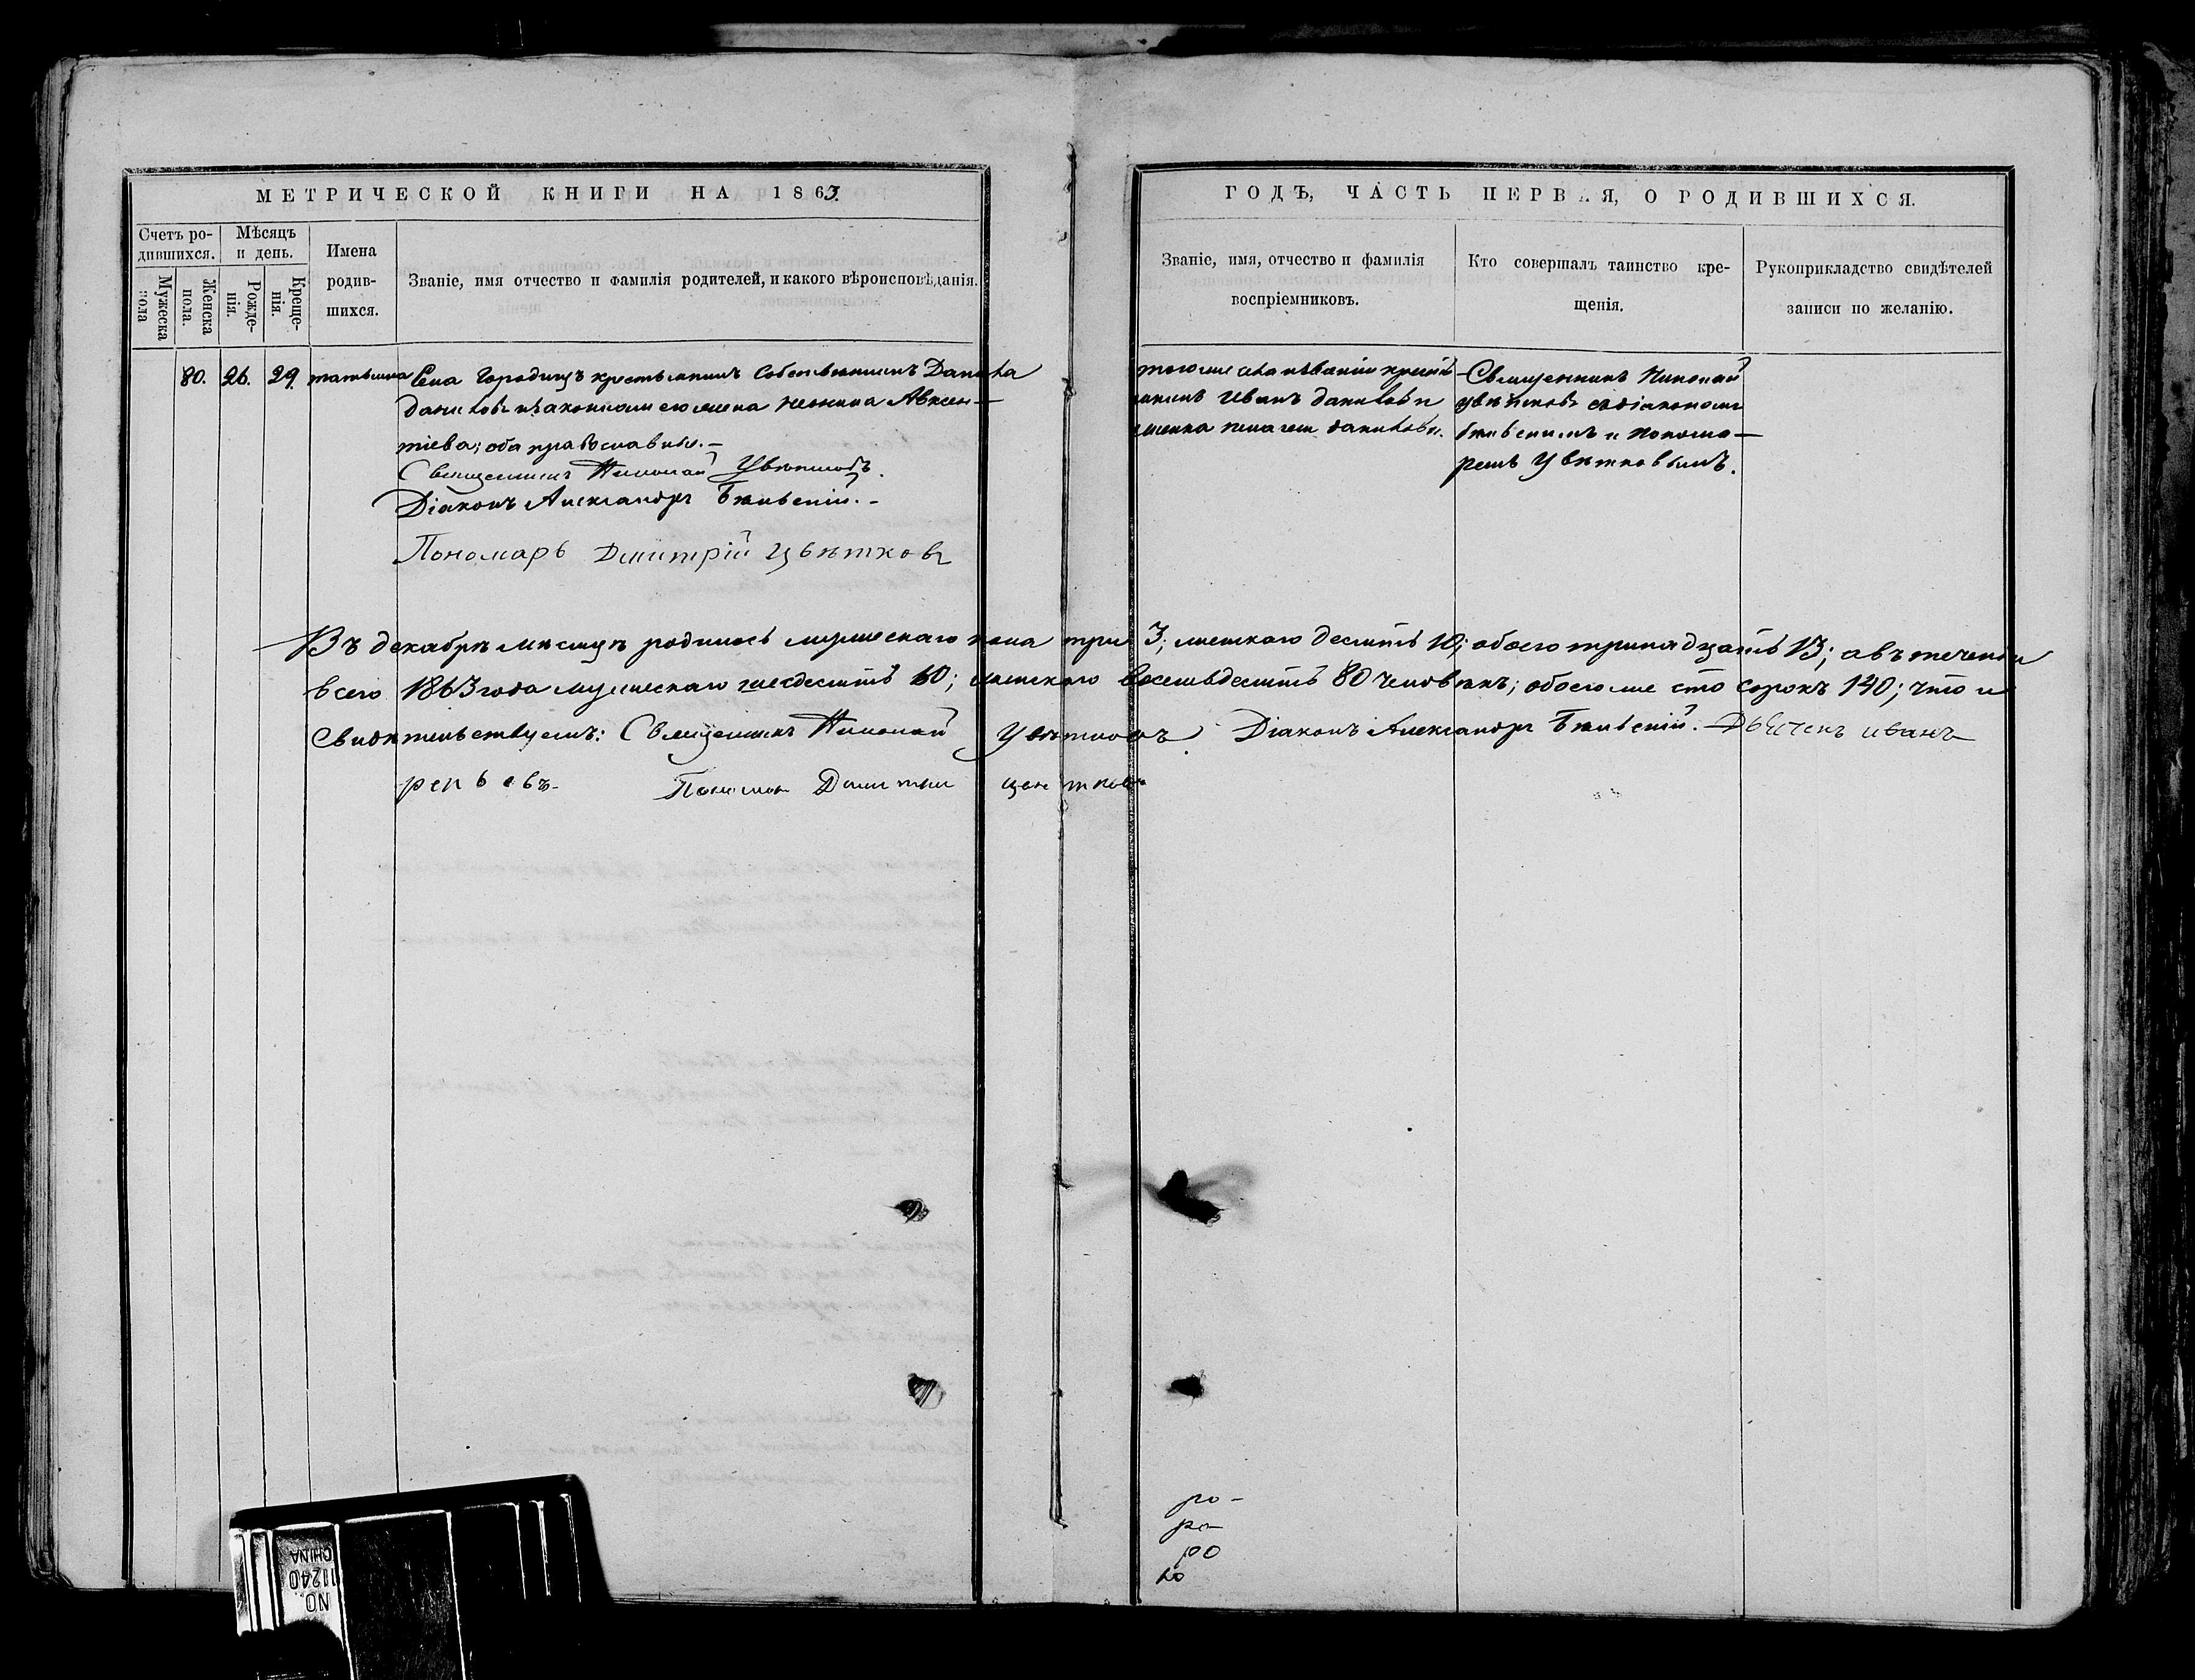 МЕТРИЧЕСКОЙ КНИГИ НА 1863.
Счетъ ро-
дившихся.
Мѣсяцъ
и день.
Мужеска
пола
Женска
пола.
Рожде-
нія.
Креще-
нія.
Имена
родив-
шихся.
Званіе, имя отчество и фамилія родителей, и какого вѣроисповѣданія.
80. 26. 29. татьяна Села Городищъ крестьянинъ собственникъ Данила
Даниловъ и законная его жена Неонила Авксен-
тіева; оба православные.
Священникъ Николай Цвѣтковъ.
Діаконъ Александръ
Пономарь Дмитрій Цвѣтковъ
ГОДЪ, ЧАСТЬ ПЕРВАЯ, О РОДИВШИХСЯ.
Званіе, имя, отчество и фамилія
воспріемниковъ.
Кто совершалъ таинство кре-
щенія.
Рукоприкладство свидѣтелей
записи по желанію.
тогоже села крестья
янинъ Иванъ Даниловъ и
Пелагея Данилова.
Священникъ Николай
Цвѣтковъ съ діакономъ
и понома-
ремъ Цвѣтковымъ.
Въ декабрѣ мѣсяцѣ родилось мужескаго пола три 3; женскаго десять 10; обоего тринадцать 13; а въ теченіи
всего 1863 года мужескаго шесдесятъ 60; женскаго восемьдесятъ 80 человѣкъ; обоего же сто сорокъ 140; что и
свидѣтельствуемъ: Священникъ Николай Цвѣтковъ Діаконъ Александръ Дьячекъ иванъ
репьевъ. Пономарь Дмитрій Цвѣтковъ
NO. 11240
CHINA